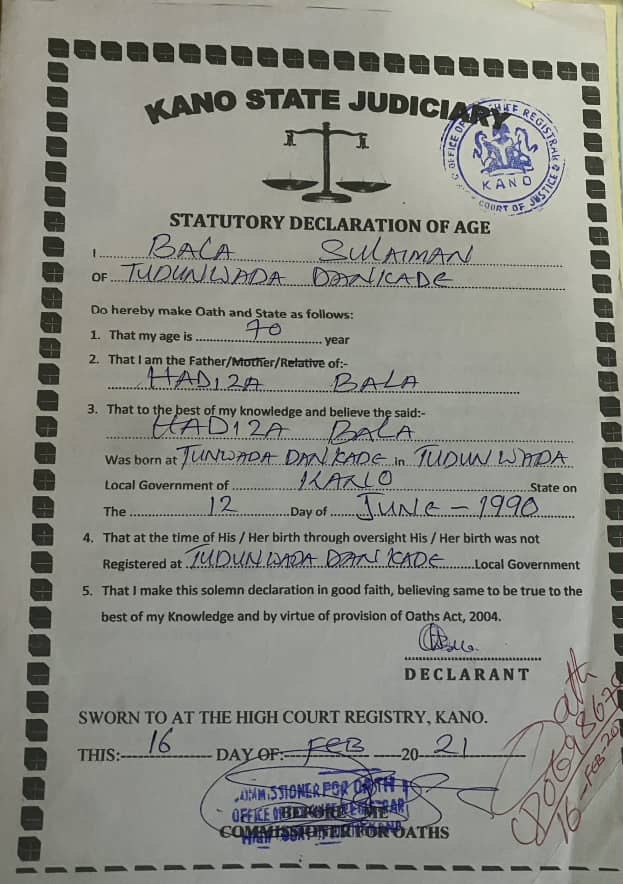 KANO STATE JUDICIARY
OFFICE OF CHIEF REGISTRAR
KANO
COURT OF JUSTICE
STATUTORY DECLARATION OF AGE
I BALA SULAIMAN
OF TUDUNWADA DANKADE
Do hereby make Oath and State as follows:
1. That my age is 70 year
2. That I am the Father/Mother/Relative of:-
HADIZA BALA
3. That to the best of my knowledge and believe the said:-
HADIZA BALA
Was born at TUNWADA DANKADE in TUDUNWADA
Local Government of KANO State on
The 12 Day of JUNE - 1990
4. That at the time of His / Her birth through oversight His / Her birth was not
Registered at TUDUNWADA DANKADE Local Government
5. That I make this solemn declaration in good faith, believing same to be true to the
best of my Knowledge and by virtue of provision of Oaths Act, 2004.
DECLARANT
SWORN TO AT THE HIGH COURT REGISTRY, KANO.
THIS: 16 DAY OF: FEB 20 21
COMMISSIONER FOR OATH
BEFORE ME
COMMISSIONER FOR OATHS
Oath
16-FEB 20